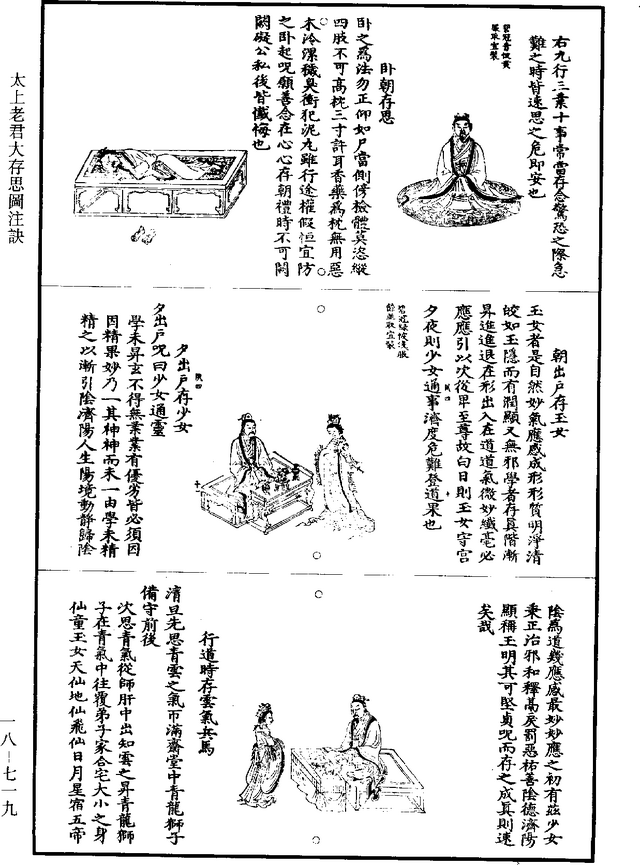 右九行三業十事常當存念驚恐之際急
難之時皆速思之危即安也
臥朝存思
臥之為法勿正仰如尸當側傍檢體莫恣縱
四肢不可高枕三寸許耳香藥為枕無用惡
木冷漯穢臭衝犯泥丸雖行途權假恒宜防
之臥起呪願善念在心心存朝禮時不可闕
闕礙公私後皆懺悔也
朝出戶存玉女
玉女者是自然妙氣應感成形形質明淨清
皎如玉隱而有潤顯又無邪學者存真階漸
昇進進退在形出入在道道氣微妙纖毫必
應應引以次從卑至尊故白日則玉女守宮
夕夜則少女通事濟度危難登道果也
夕出戶存少女
夕出戶呪曰少女通靈
學未昇玄不得無業業有優劣皆必須因
因精果妙乃一其神神而未一由學未精
精之以漸引陰濟陽人生陽境動靜歸陰
陰為道幾應感最妙妙應之初有茲少女
秉正治邪和釋萬戾罰惡祐善陰德濟陽
顯稱玉明其可堅貞呪而存之成真則速
矣哉
行道時存雲氣兵馬
清旦先思青雲之氣帀滿齋堂中青龍獅子
備守前後
次思青氣從師肝中出如雲之昇青龍獅
子在青氣中往覆弟子家合宅大小之身
仙童玉女天仙地仙飛仙日月星宿五帝
太上老君大存思圖注訣
一八—七一九